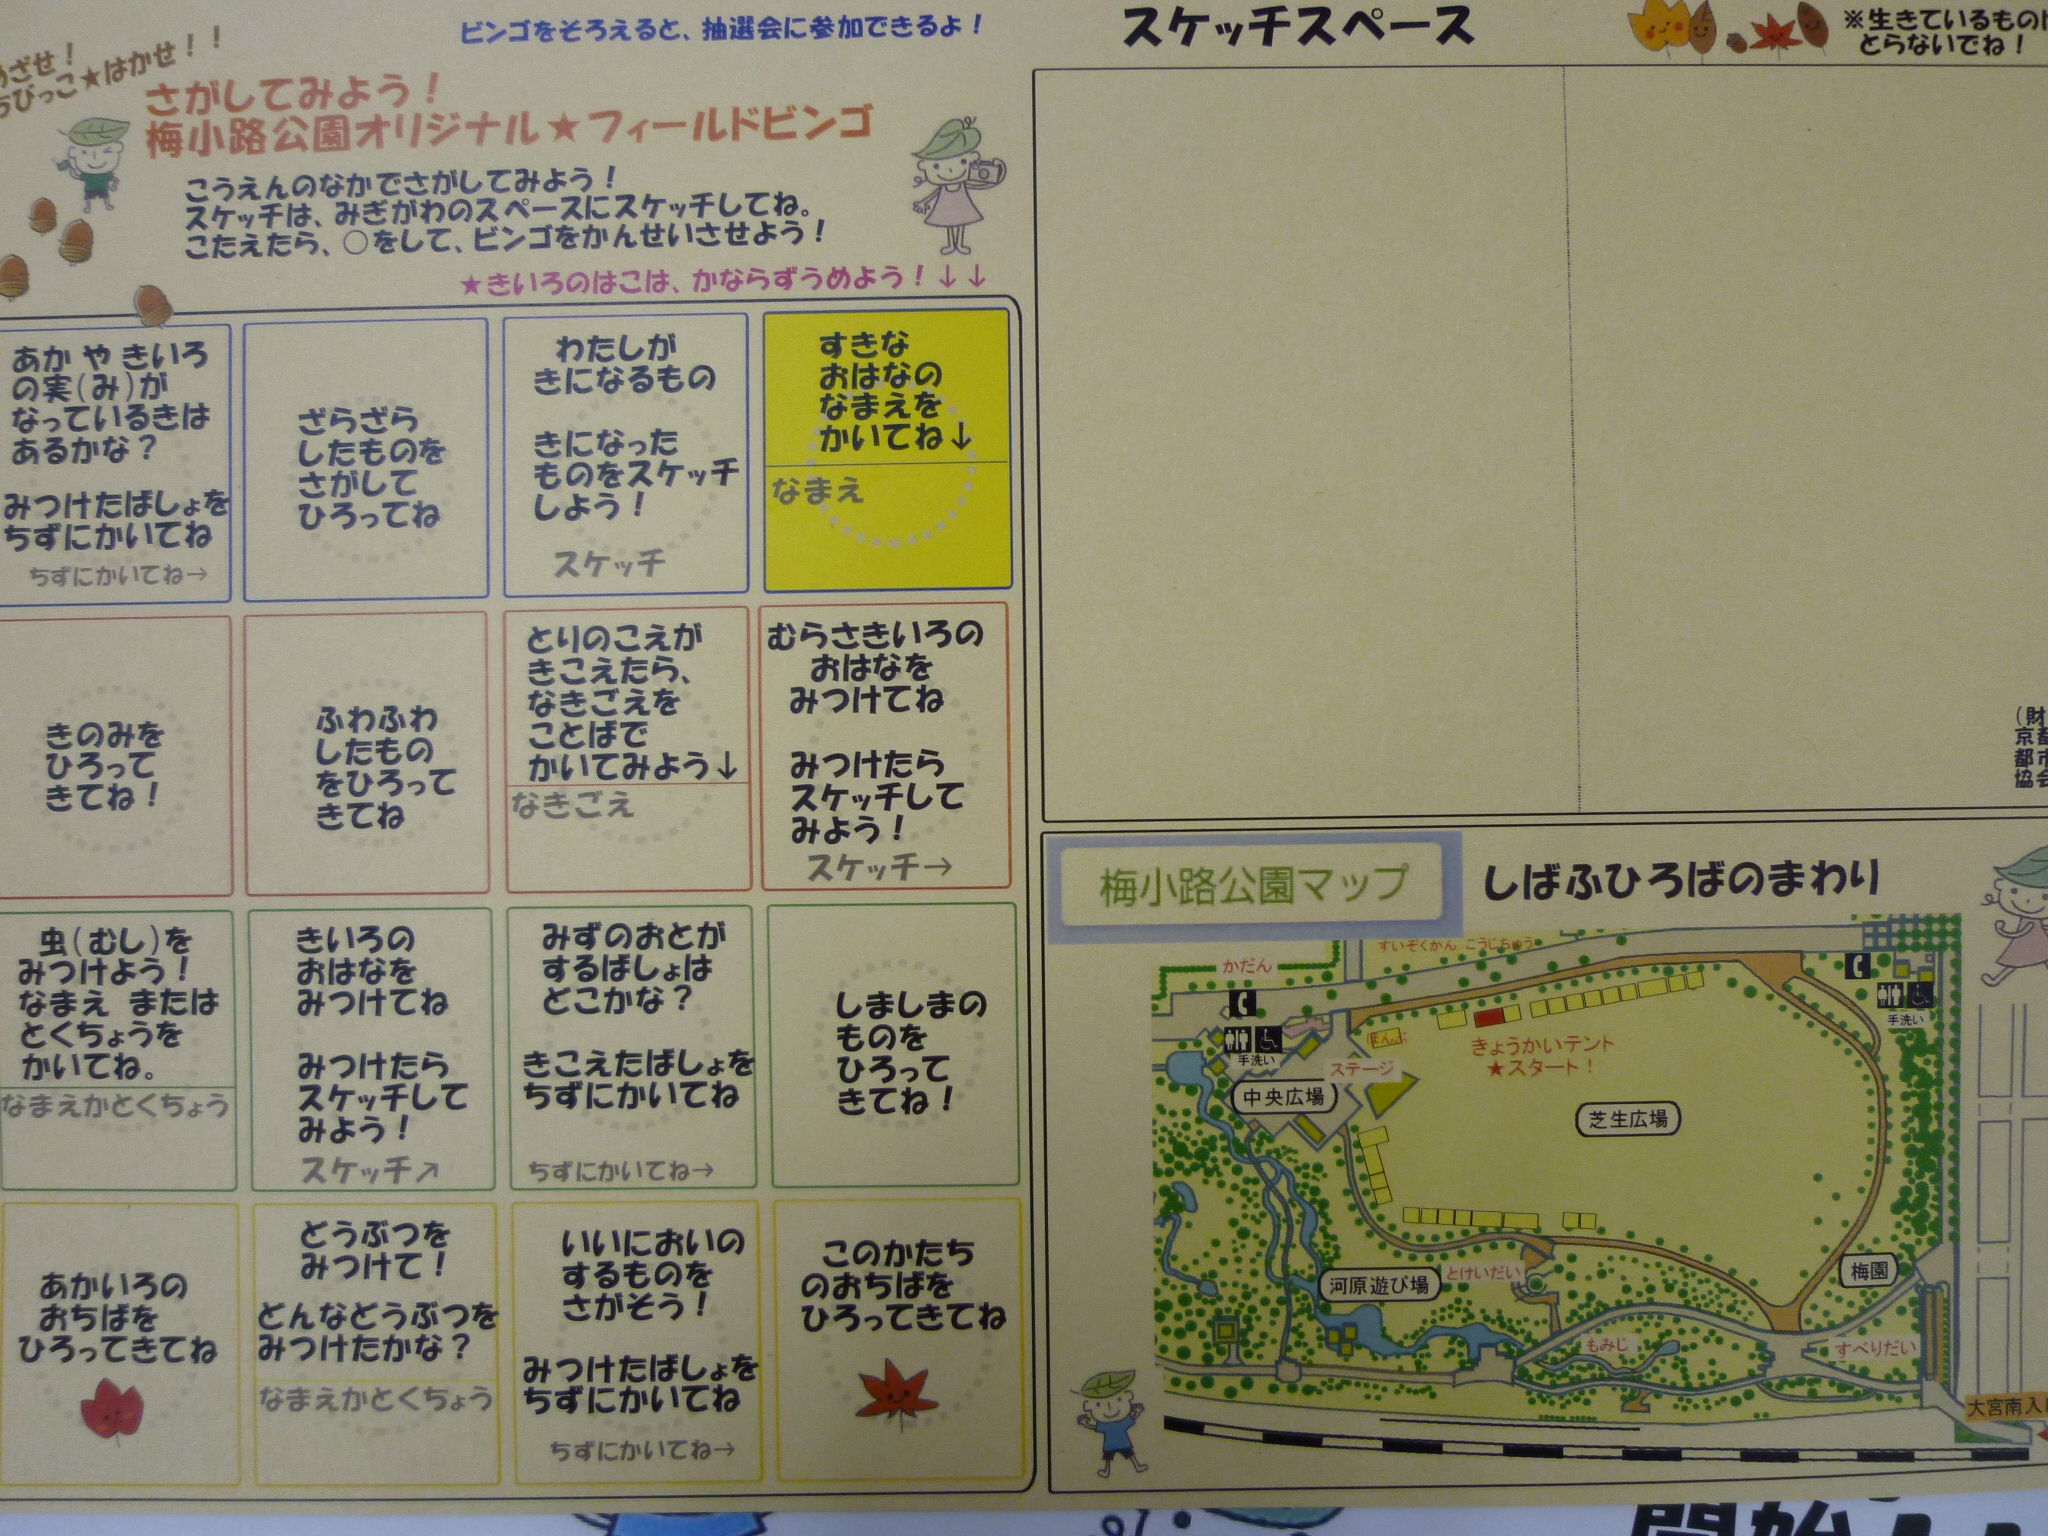 ビンゴをそろえると、抽選会に参加できるよ！
めざせ！
ちびっこ★はかせ！！
さがしてみよう！
梅小路公園オリジナル★フィールドビンゴ
こうえんのなかでさがしてみよう！
スケッチは、みぎがわのスペースにスケッチしてね。
こたえたら、○をして、ビンゴをかんせいさせよう！
★きいろのはこは、かならずうめよう！↓↓
あか や きいろ
の実(み)が
なっているきは
あるかな？
みつけたばしょを
ちずにかいてね
ちずにかいてね→
ざらざら
したものを
さがして
ひろってね
わたしが
きになるもの
きになった
ものをスケッチ
しよう！
スケッチ
すきな
おはなの
なまえを
かいてね↓
なまえ
きのみを
ひろって
きてね！
ふわふわ
したもの
をひろって
きてね
とりのこえが
きこえたら、
なきごえを
ことばで
かいてみよう↓
なきごえ
むらさきいろの
おはなを
みつけてね
みつけたら
スケッチして
みよう！
スケッチ→
虫(むし)を
みつけよう！
なまえ または
とくちょうを
かいてね。
なまえかとくちょう
きいろの
おはなを
みつけてね
みつけたら
スケッチして
みよう！
スケッチ↗
みずのおとが
するばしょは
どこかな？
きこえたばしょを
ちずにかいてね
ちずにかいてね→
しましまの
ものを
ひろって
きてね！
あかいろの
おちばを
ひろってきてね
どうぶつを
みつけて！
どんなどうぶつを
みつけたかな？
なまえかとくちょう
いいにおいの
するものを
さがそう！
みつけたばしょを
ちずにかいてね
ちずにかいてね→
このかたち
のおちばを
ひろってきてね
スケッチスペース
※生きているものは
とらないでね！
(財
京都
都市
協会
梅小路公園マップ
しばふひろばのまわり
すいぞくかん こうじちゅう
かだん
手洗い
ほんぶ
ステージ
きょうかいテント
★スタート！
手洗い
中央広場
芝生広場
河原遊び場
とけいだい
梅園
もみじ
すべりだい
大宮南入口
開始